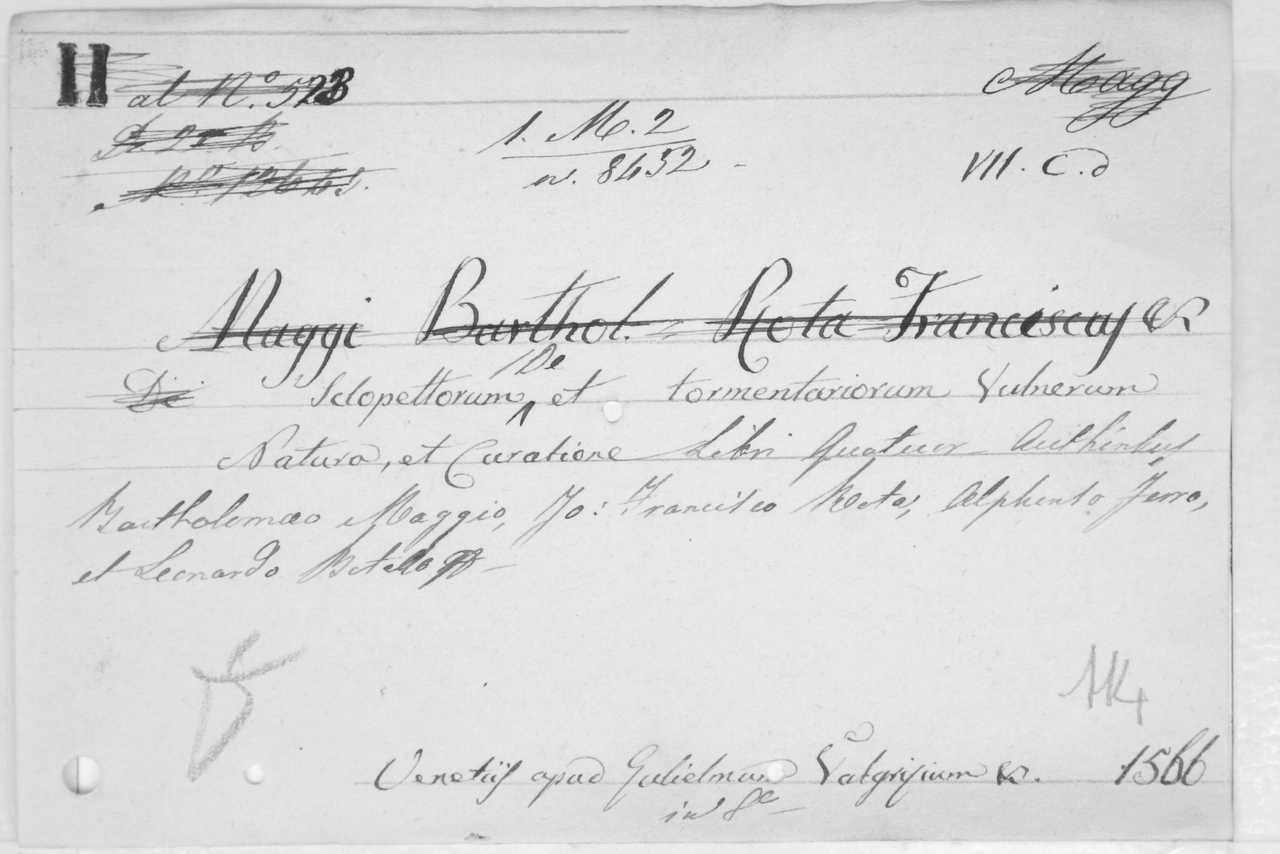 II at No. 523
Magg
1. M. 2
n. 8452
VII. C. d
Maggi Barthol. - Rota Franciscus &
De
De Sclopettorum, et tormentariorum Vulnerum
Natura, et Curatione Libri Quatuor
Bartholomæo Maggio, Jo: Francisco Rota, Alphonso Ferro,
et Leonardo Botallo
Venetiis apud Gulielmum Valgrisium &. 1566
in 8o